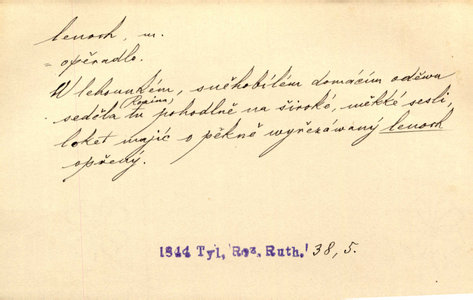 lenoch, m.
= opěradlo.
W lehounkém, sněhobílém domácím oděwu
seděla tu (Rosina) pohodlně na široké, měkké sesli,
loket majíc o pěkně wyřezáwaný lenoch
opřený.
1844 Tyl, Roz. Ruth.' 38, 5.